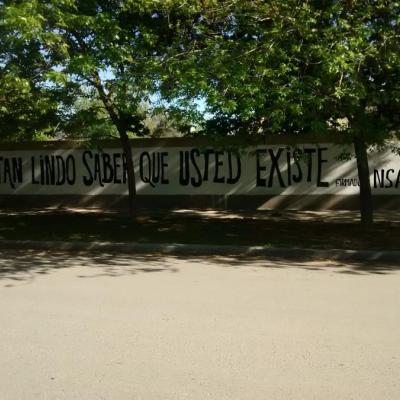 TAN LINDO SABER QUE USTED EXISTE FIRMADO NSA